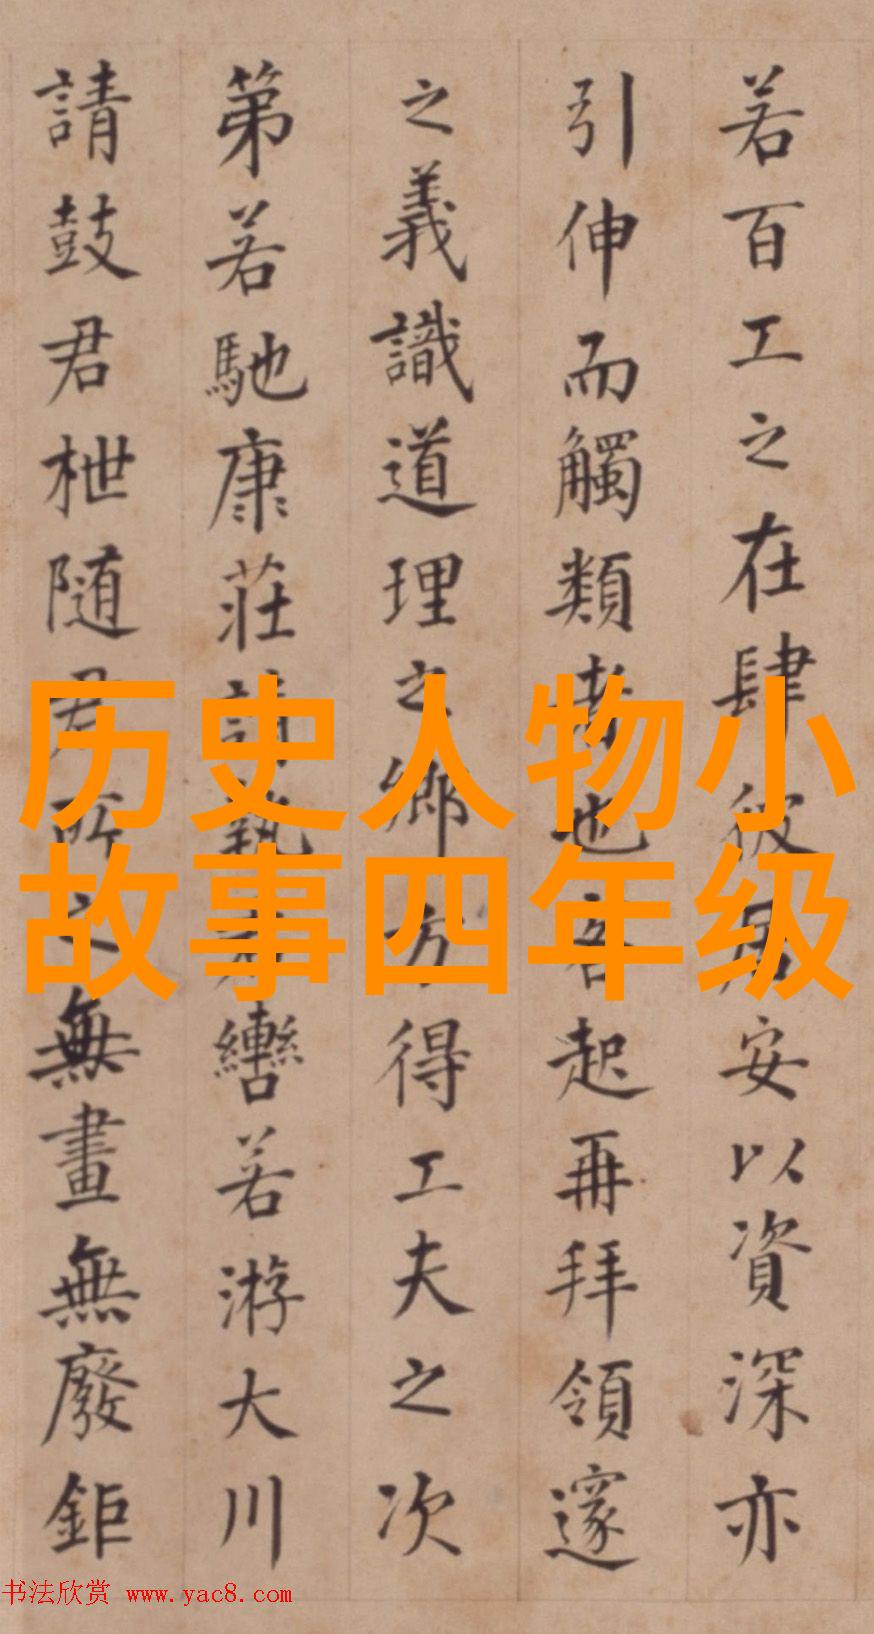 若百工之在肆彼居安以資深亦
引伸而觸類者也吾起再拜領邃
之義識道理之鄉方得工夫之次
第若馳康莊請執君轡若游大川
請鼓君枻随君所之無畫無廢鉅
历史人物小
故事四年级
书法欣赏 www.yac8.com